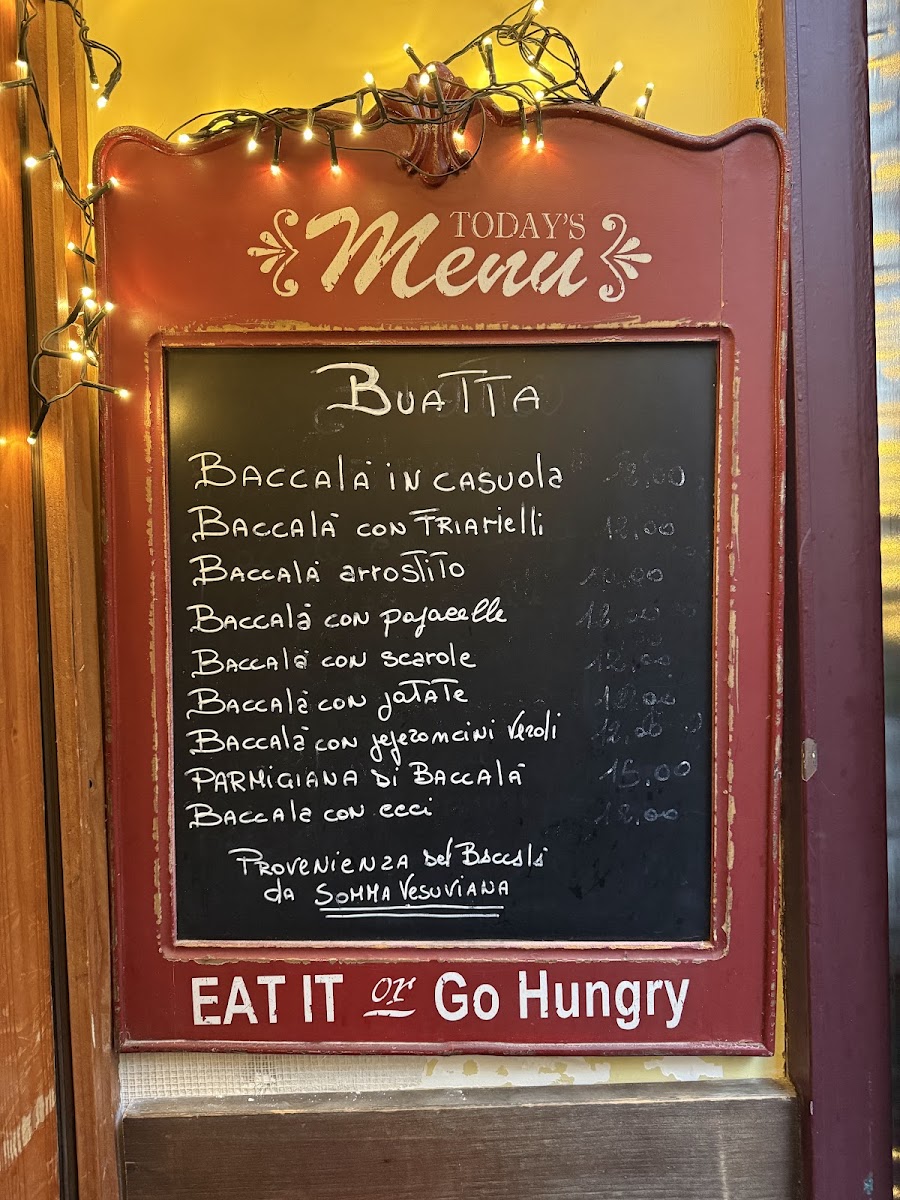 TODAY'S
Menu
BUATTA
BACCALÀ IN CASUOLA 12,00
BACCALÀ CON FRIARIELLI 12,00
BACCALÀ ARROSTITO 10,00
BACCALÀ CON papacelle 12,00
BACCALÀ CON scarole 12,00
BACCALÀ CON patate 12,00
BACCALÀ CON peperoncini Verdi 12,00
PARMIGIANA di BACCALÀ 15,00
BACCALÀ CON ceci 12,00
PROVENIENZA del BACCALÀ
da SOMMA VESUVIANA
EAT IT or Go Hungry